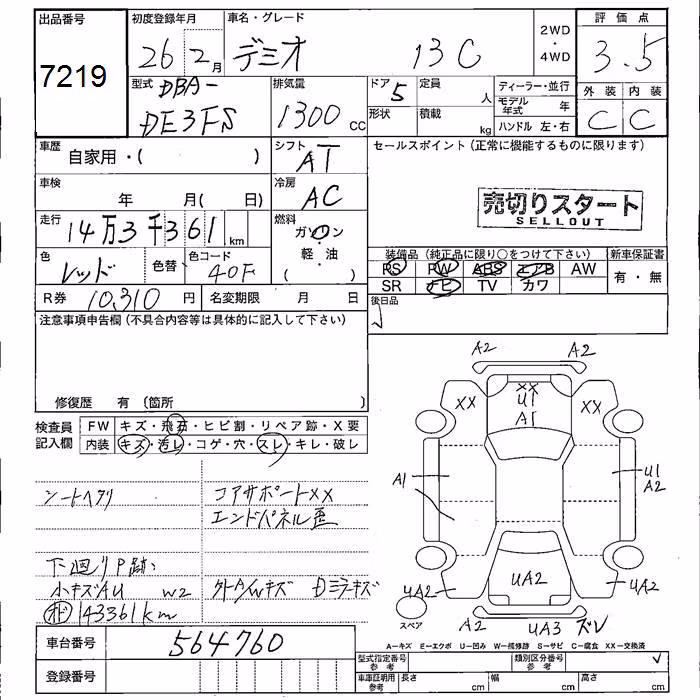 出品番号
7219
初度登録年月
26年2月
車名・グレード
デミオ 13C
2WD
・
4WD
評価点
3.5
型式
DBA-
DE3FS
排気量
1300 cc
ドア
5
形状
定員
人
積載
kg
ディーラー・並行
モデル年式 年
ハンドル 左・右
外装 内装
C C
車歴
自家用・( )
シフト
AT
セールスポイント (正常に機能するものに限ります)
車検
年 月( 日)
冷房
AC
売切りスタート
SELLOUT
走行
14万3千361km
燃料
ガソリン
・
軽・油
色
レッド
色替
色コード
40F
装備品 (純正品に限り○をつけて下さい)
新車保証書
PS PW ABS エアB AW
SR ナビ TV カワ
有・無
R券 10,310円
名変期限 月 日
後日品
注意事項申告欄 (不具合内容等は具体的に記入して下さい)
修復歴 有 (箇所 )
検査員
記入欄
FW キズ・飛石・ヒビ割・リペア跡・X要
内装 キズ・汚レ・コゲ・穴・スレ・キレ・破レ
シートヘタリ
コアサポートXX
エンドパネル歪
下廻りP跡
小キズAU W2
外A/Wキズ Dミラーキズ
143361km
車台番号
564760
登録番号
A2 A2
XX
XX
U1
A1
XX
A1
U1
A2
UA2
UA2
UA2
スペア
A2
UA3 ズレ
A=キズ E=エクボ U=凹み W=補修跡 S=サビ C=腐食 XX=交換済
型式指定番号
参考
類別区分番号
参考
車庫証明用
参考
長さ cm
幅 cm
高さ cm